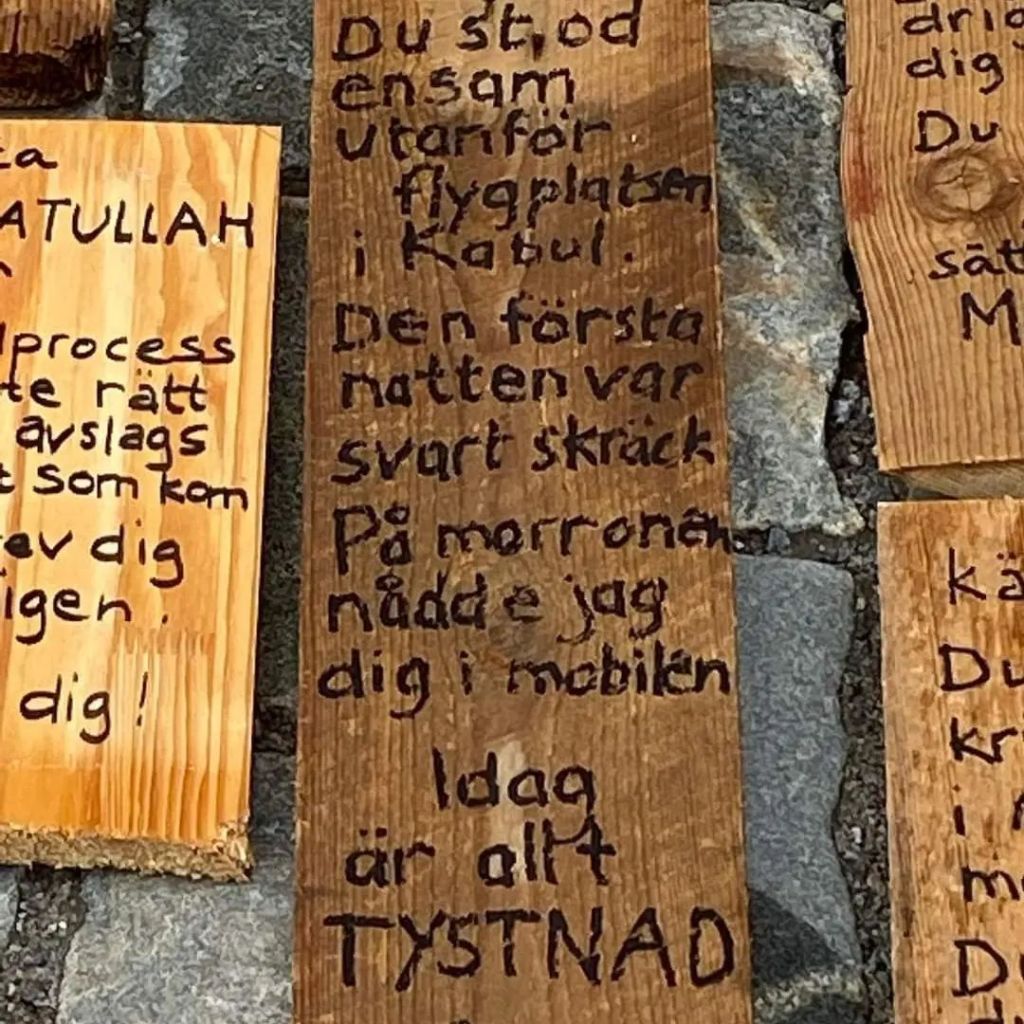 ATULLAH
process
te rätt
avslags
som kom
dig
igen.
dig!
Du stod
ensam
utanför
flygplatsen
i Kabul.
Den första
natten var
svart skräck
På morronen
nådde jag
dig i mobilen
Idag
är allt
TYSTNAD
dig
Du
Du
i